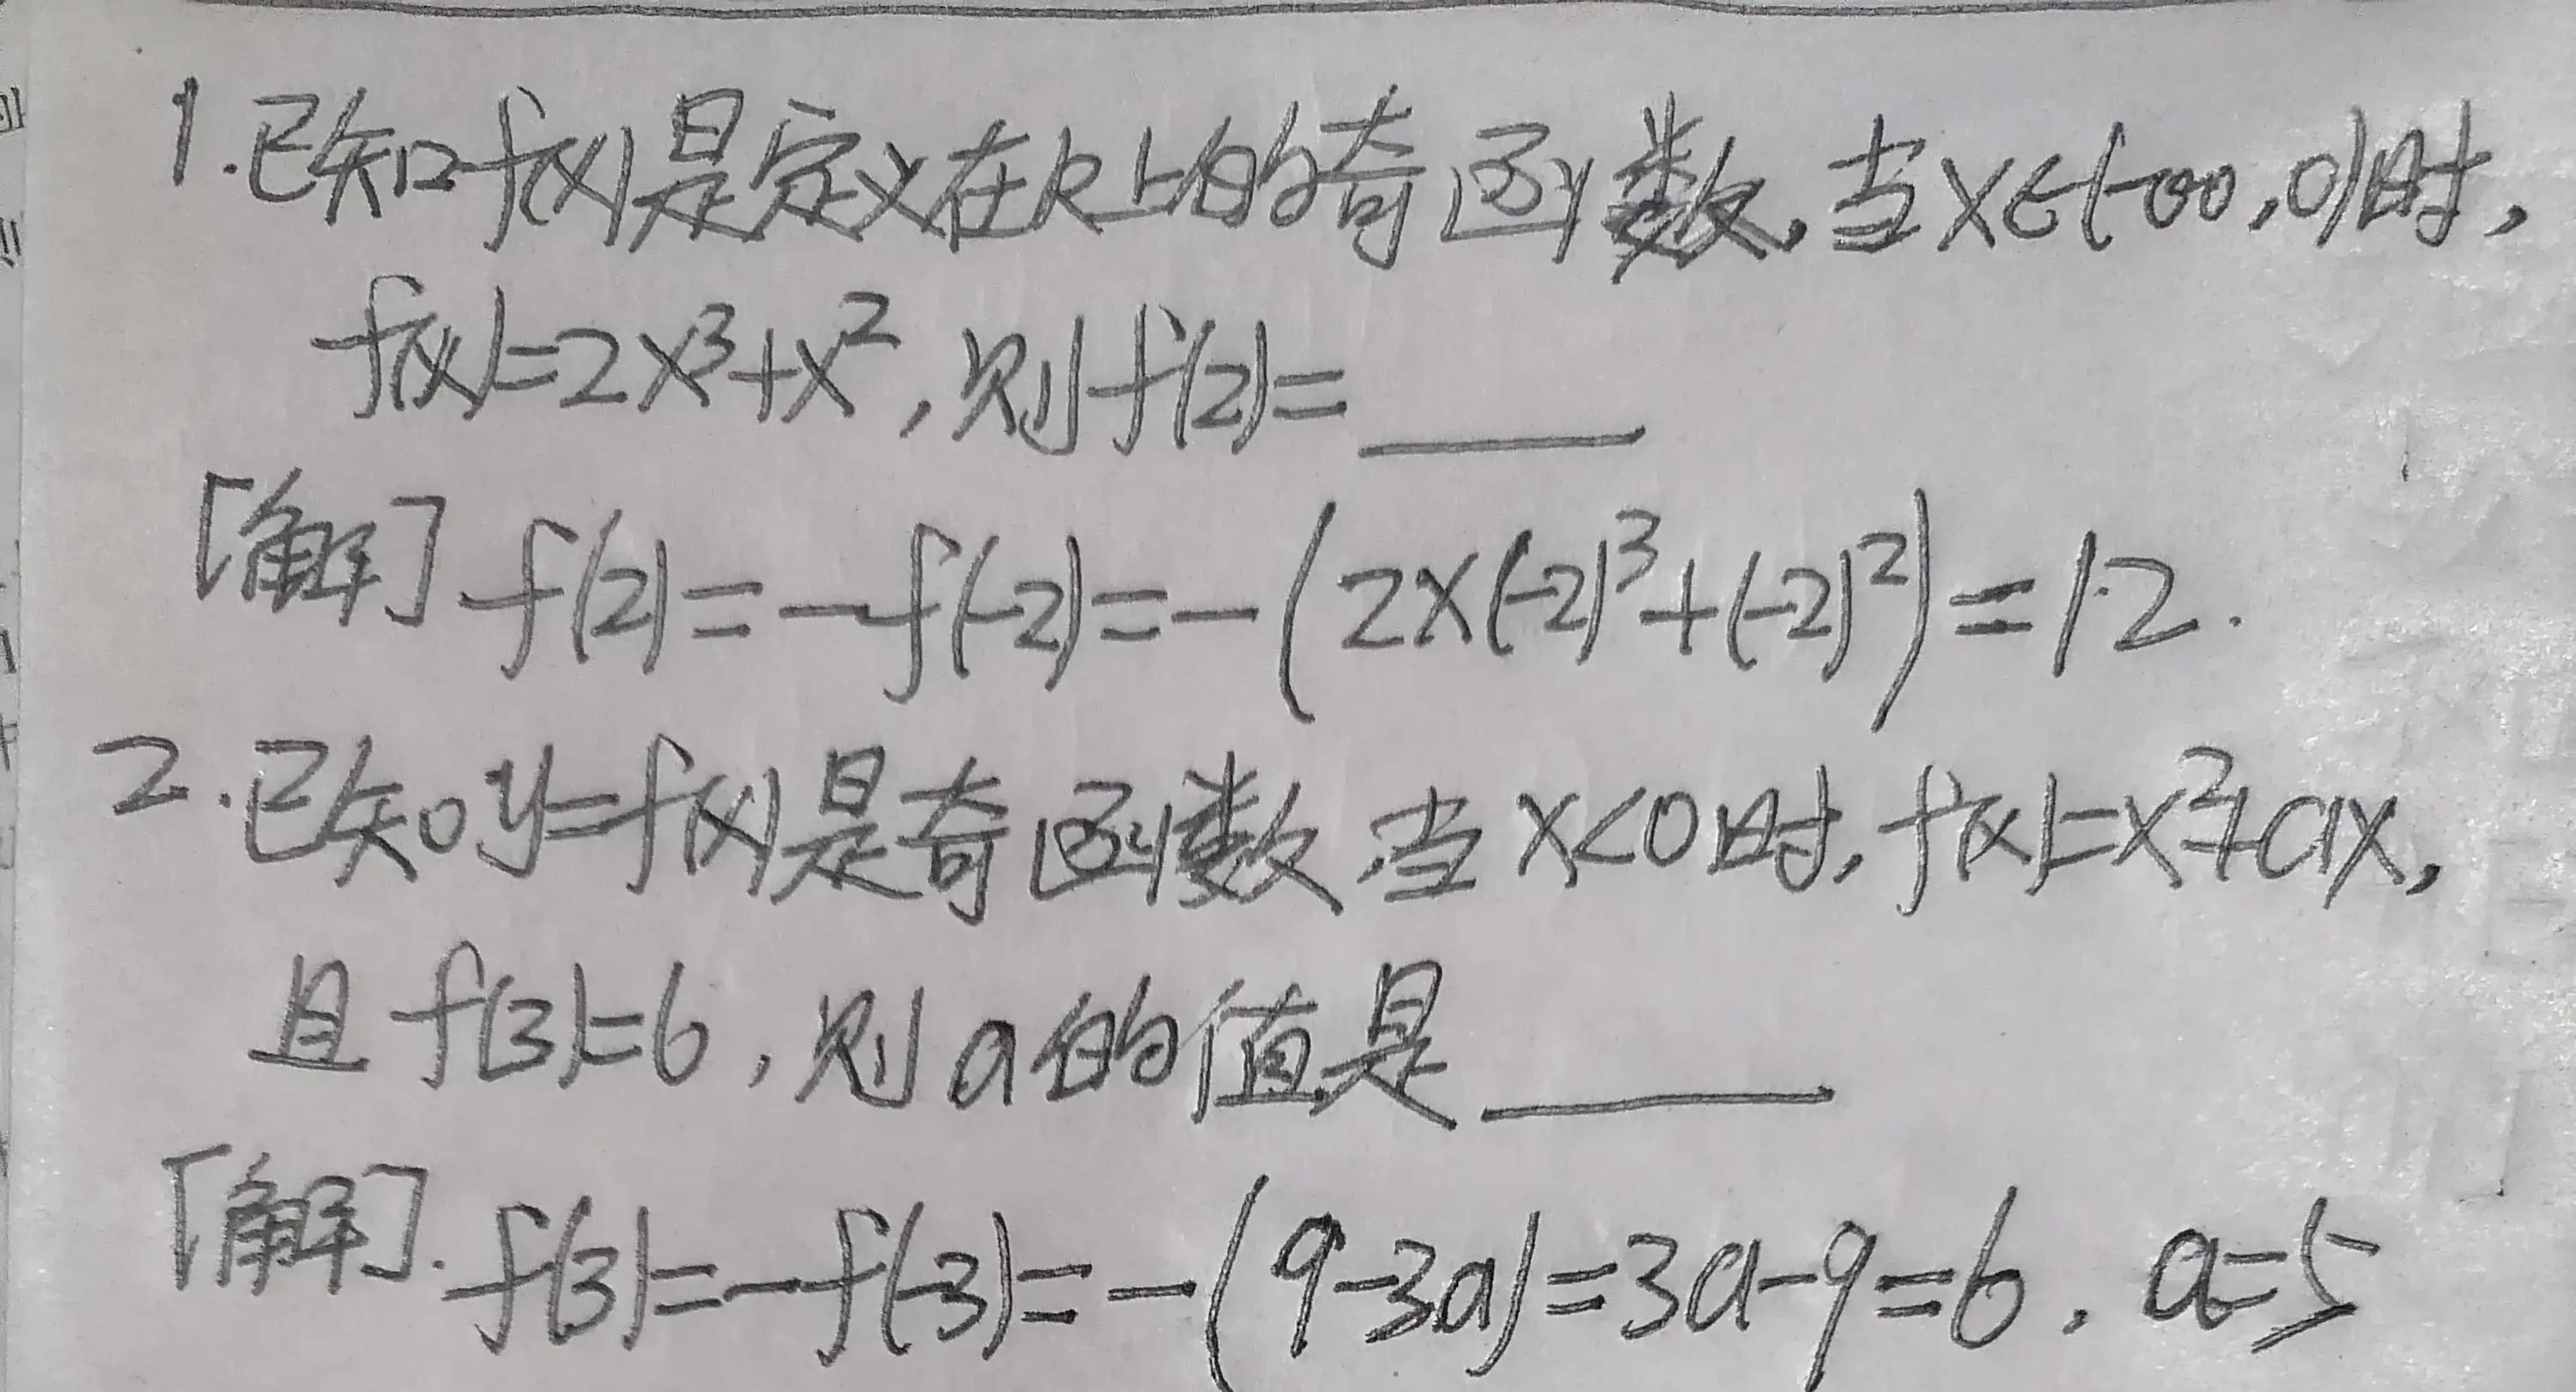 1.已知f(x)是定义在R上的奇函数,当x∈(-∞,0)时,
f(x)=2x³+x²,则f(2)=____
[解] f(2)=-f(-2)=-(2×(-2)³+(-2)²)=12.
2.已知y=f(x)是奇函数,当x<0时,f(x)=x²+ax,
且f(3)=6,则a的值是____
[解].f(3)=-f(-3)=-(9-3a)=3a-9=6.a=5